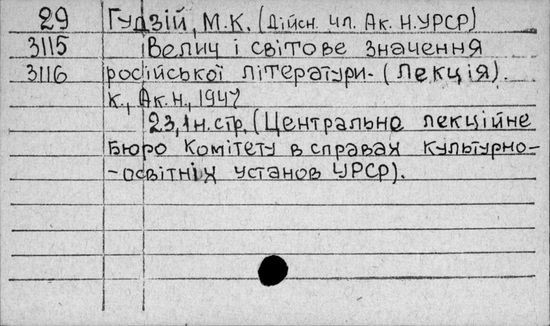 29 Гудзій, М.К. (Дійсн. чл. Ак. Н.УРСР)
3115 Велич і світове значення
3116 російської літератури. (Лекція).
К., Ак.н., 1947
23,1н.стр. (Центральне лекційне
Бюро Комітету в справах культурно-
-освітніх установ УРСР).